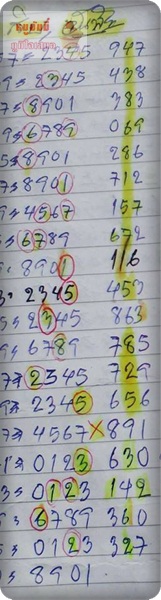 7= 2345 947
9= 2345 438
7= 8901 383
9= 6789 069
5= 8901 286
7= 8901 712
9= 4567 157
= 6789 672
8901 116
3= 2345 453
5= 2345 863
9= 6789 785
7= 2345 729
9= 2345 656
7= 4567 × 891
1= 0123 630
3= 0123 142
9= 6789 360
= 0123 327
= 8901